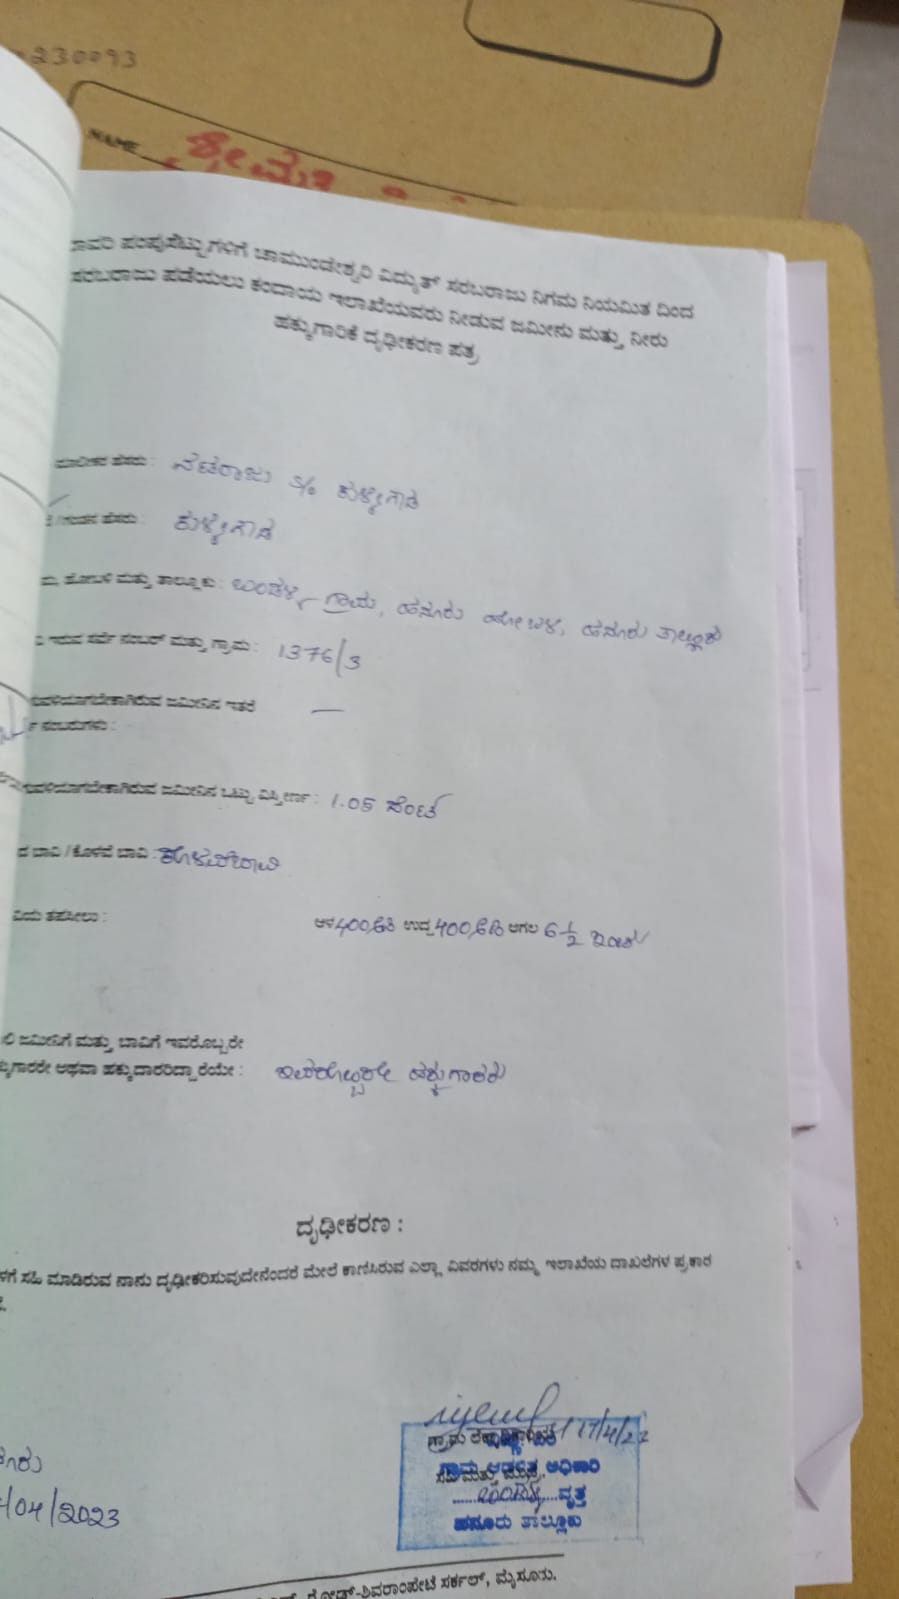 230093
NAME ಶ್ರೀಮತಿ
ನೀರಾವರಿ ಪಂಪುಸೆಟ್ಟುಗಳಿಗೆ ಚಾಮುಂಡೇಶ್ವರಿ ವಿದ್ಯುತ್ ಸರಬರಾಜು ನಿಗಮ ನಿಯಮಿತ ದಿಂದ
ಸರಬರಾಜು ಪಡೆಯಲು ಕಂದಾಯ ಇಲಾಖೆಯವರು ನೀಡುವ ಜಮೀನು ಮತ್ತು ನೀರು
ಹಕ್ಕುಗಾರಿಕೆ ದೃಢೀಕರಣ ಪತ್ರ
ಮಾಲೀಕರ ಹೆಸರು : ನಟರಾಜು S/o ಕುಳ್ಳೇಗೌಡ
ಹೆಸರು : ಕುಳ್ಳೇಗೌಡ
ಹೋಬಳಿ ಮತ್ತು ತಾಲ್ಲೂಕು : ಬಂಡಳ್ಳಿ ಗ್ರಾಮ, ಹನೂರು ಹೋಬಳಿ, ಹನೂರು ತಾಲ್ಲೂಕು
ಇರುವ ಸರ್ವೆ ನಂಬರ್ ಮತ್ತು ಗ್ರಾಮ : 1376/3
ಜಮೀನಿನ ಇತರೆ —
ನಂಬರುಗಳು :
ಜಮೀನಿನ ಒಟ್ಟು ವಿಸ್ತೀರ್ಣ : 1.05 ಸೆಂಟ್
ಬಾವಿ / ಕೊಳವೆ ಬಾವಿ : ಕೊಳವೆಬಾವಿ
ತಪಸೀಲು : ಆಳ 400 ಅಡಿ ಉದ್ದ 400 ಅಡಿ ಅಗಲ 6 1/2 ಇಂಚು
ಜಮೀನಿಗೆ ಮತ್ತು ಬಾವಿಗೆ ಇವರೊಬ್ಬರೇ
ಅಥವಾ ಹಕ್ಕುದಾರರಿದ್ದಾರೆಯೇ : ಇವರೊಬ್ಬರೇ ಹಕ್ಕುಗಾರರು
ದೃಢೀಕರಣ :
ಸಹಿ ಮಾಡಿರುವ ನಾನು ದೃಢೀಕರಿಸುವುದೇನೆಂದರೆ ಮೇಲೆ ಕಾಣಿಸಿರುವ ಎಲ್ಲಾ ವಿವರಗಳು ನಮ್ಮ ಇಲಾಖೆಯ ದಾಖಲೆಗಳ ಪ್ರಕಾರ
17/4/23
ಗ್ರಾಮ ಆಡಳಿತ ಅಧಿಕಾರಿ
ಬಂಡಳ್ಳಿ ವೃತ್ತ
ಹನೂರು ತಾಲ್ಲೂಕು
/04/2023
ರೋಡ್-ಶಿವರಾಂಪೇಟೆ ಸರ್ಕಲ್, ಮೈಸೂರು.